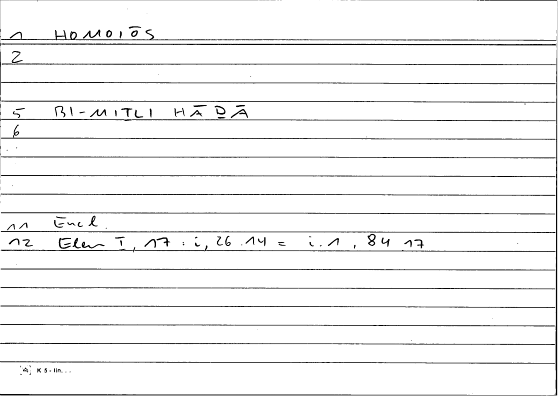 1 HOMOIŌS
2
5 BI-MIṮLI HĀḎĀ
6
11 Eucl.
12 Elem I, 17 : i, 26.14 = i.1, 84.17
K 5 - lin...